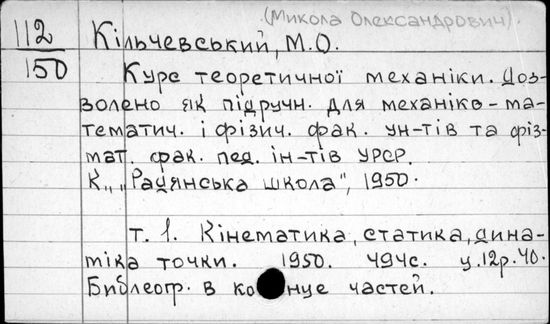 (Микола Олександрович).
112 Кільчевський, М.О.
150 Курс теоретичної механіки. Доз-
волено як підручн. для механіко-ма-
тематич. і фізич. фак. ун-тів та фіз-
мат. фак. пед. ін-тів УРСР.
К., "Радянська школа", 1950.
т. 1. Кінематика, статика, дина-
міка точки. 1950. 494с. ц.12р.40.
Библеогр. в конце частей.